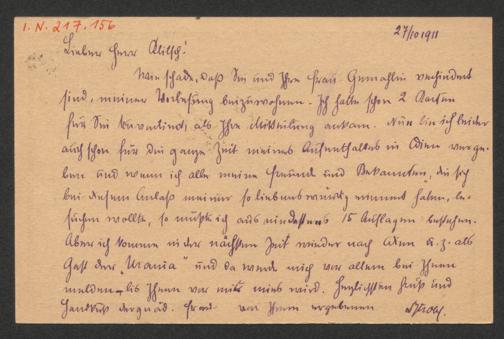 I.N. 217.156
27/10 1911
Lieber Herr Klitsch!
Wie schade, daß Sie und Ihre Frau Gemahlin verhindert
sind, meiner Vorlesung beizuwohnen. Ich hatte schon 2 Karten
für Sie als Ihre Mitteilung ankam. Nun bin ich leider
auch schon für die ganze Zeit meines Aufenthaltes in Wien verge-
ben und wenn ich alle meine Freunde und Bekannten, die sich
bei diesem Anlaß meiner so liebenswürdig erinnert haben, be-
suchen wollte, so müßte ich aus mindestens 15 Auflagen bestehen.
Aber ich komme in der nächsten Zeit wieder nach Wien u. z. als
Gast der „Urania" und da werde mich vor allem bei Ihnen
melden bis Ihnen vor mir mies wird. Herzlichsten Gruß und
Handkuß der gnäd. Frau von Ihrem ergebenen